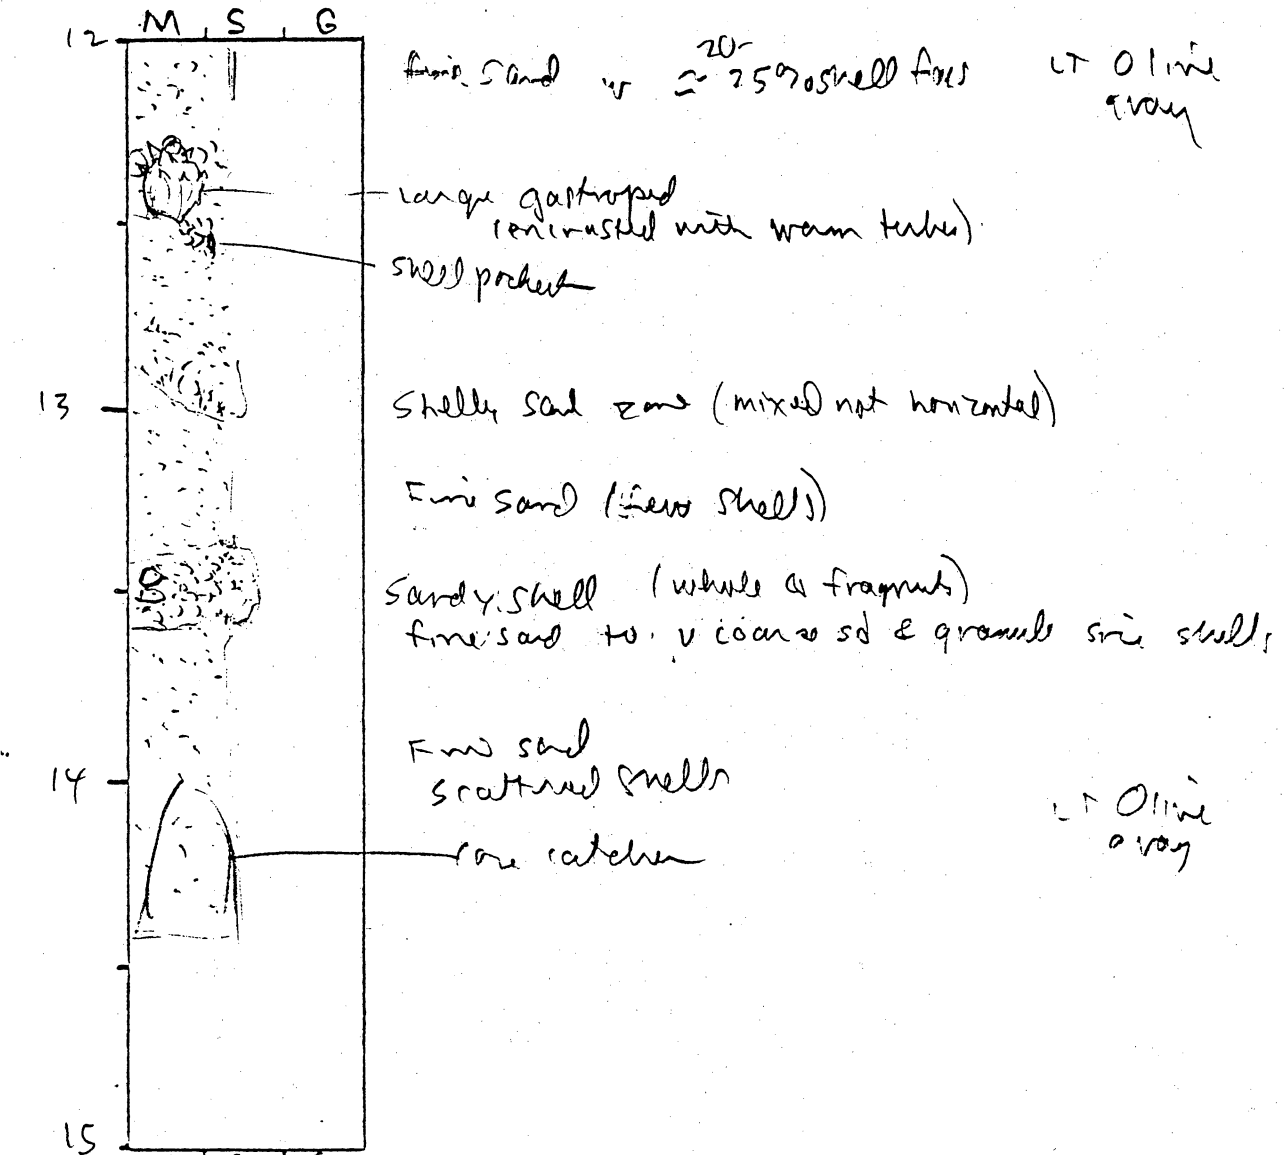 M S G
12
20-
fine sand w ≈ 25% shell frags
LT Olive
gray
large gastropod
(encrusted with worm tubes)
shell pocket
13
Shelly sand zone (mixed not horizontal)
Fine sand (few shells)
Sandy shell (whole & fragments)
fine sand to v coarse sd & granule size shells
Fine sand
14
scattered shells
LT Olive
gray
core catcher
15